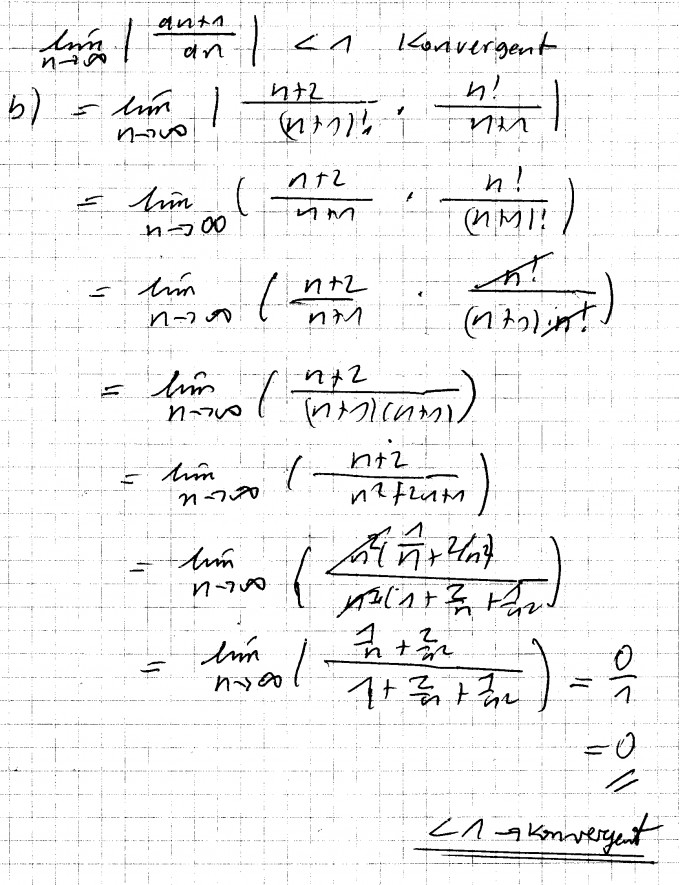 lim n→∞ | an+1 / an | < 1 Konvergent
b) = lim n→∞ | n+2 / (n+1)! · n! / n+1 |
= lim n→∞ ( n+2 / n+1 · n! / (n+1)! )
= lim n→∞ ( n+2 / n+1 · n! / (n+1)·n! )
= lim n→∞ ( n+2 / (n+1)(n+1) )
= lim n→∞ ( n+2 / n²+2n+1 )
= lim n→∞ ( n²(1/n + 2/n²) / n²(1 + 2/n + 1/n²) )
= lim n→∞ ( 1/n + 2/n² / 1 + 2/n + 1/n² ) = 0/1
= 0
< 1 → Konvergent